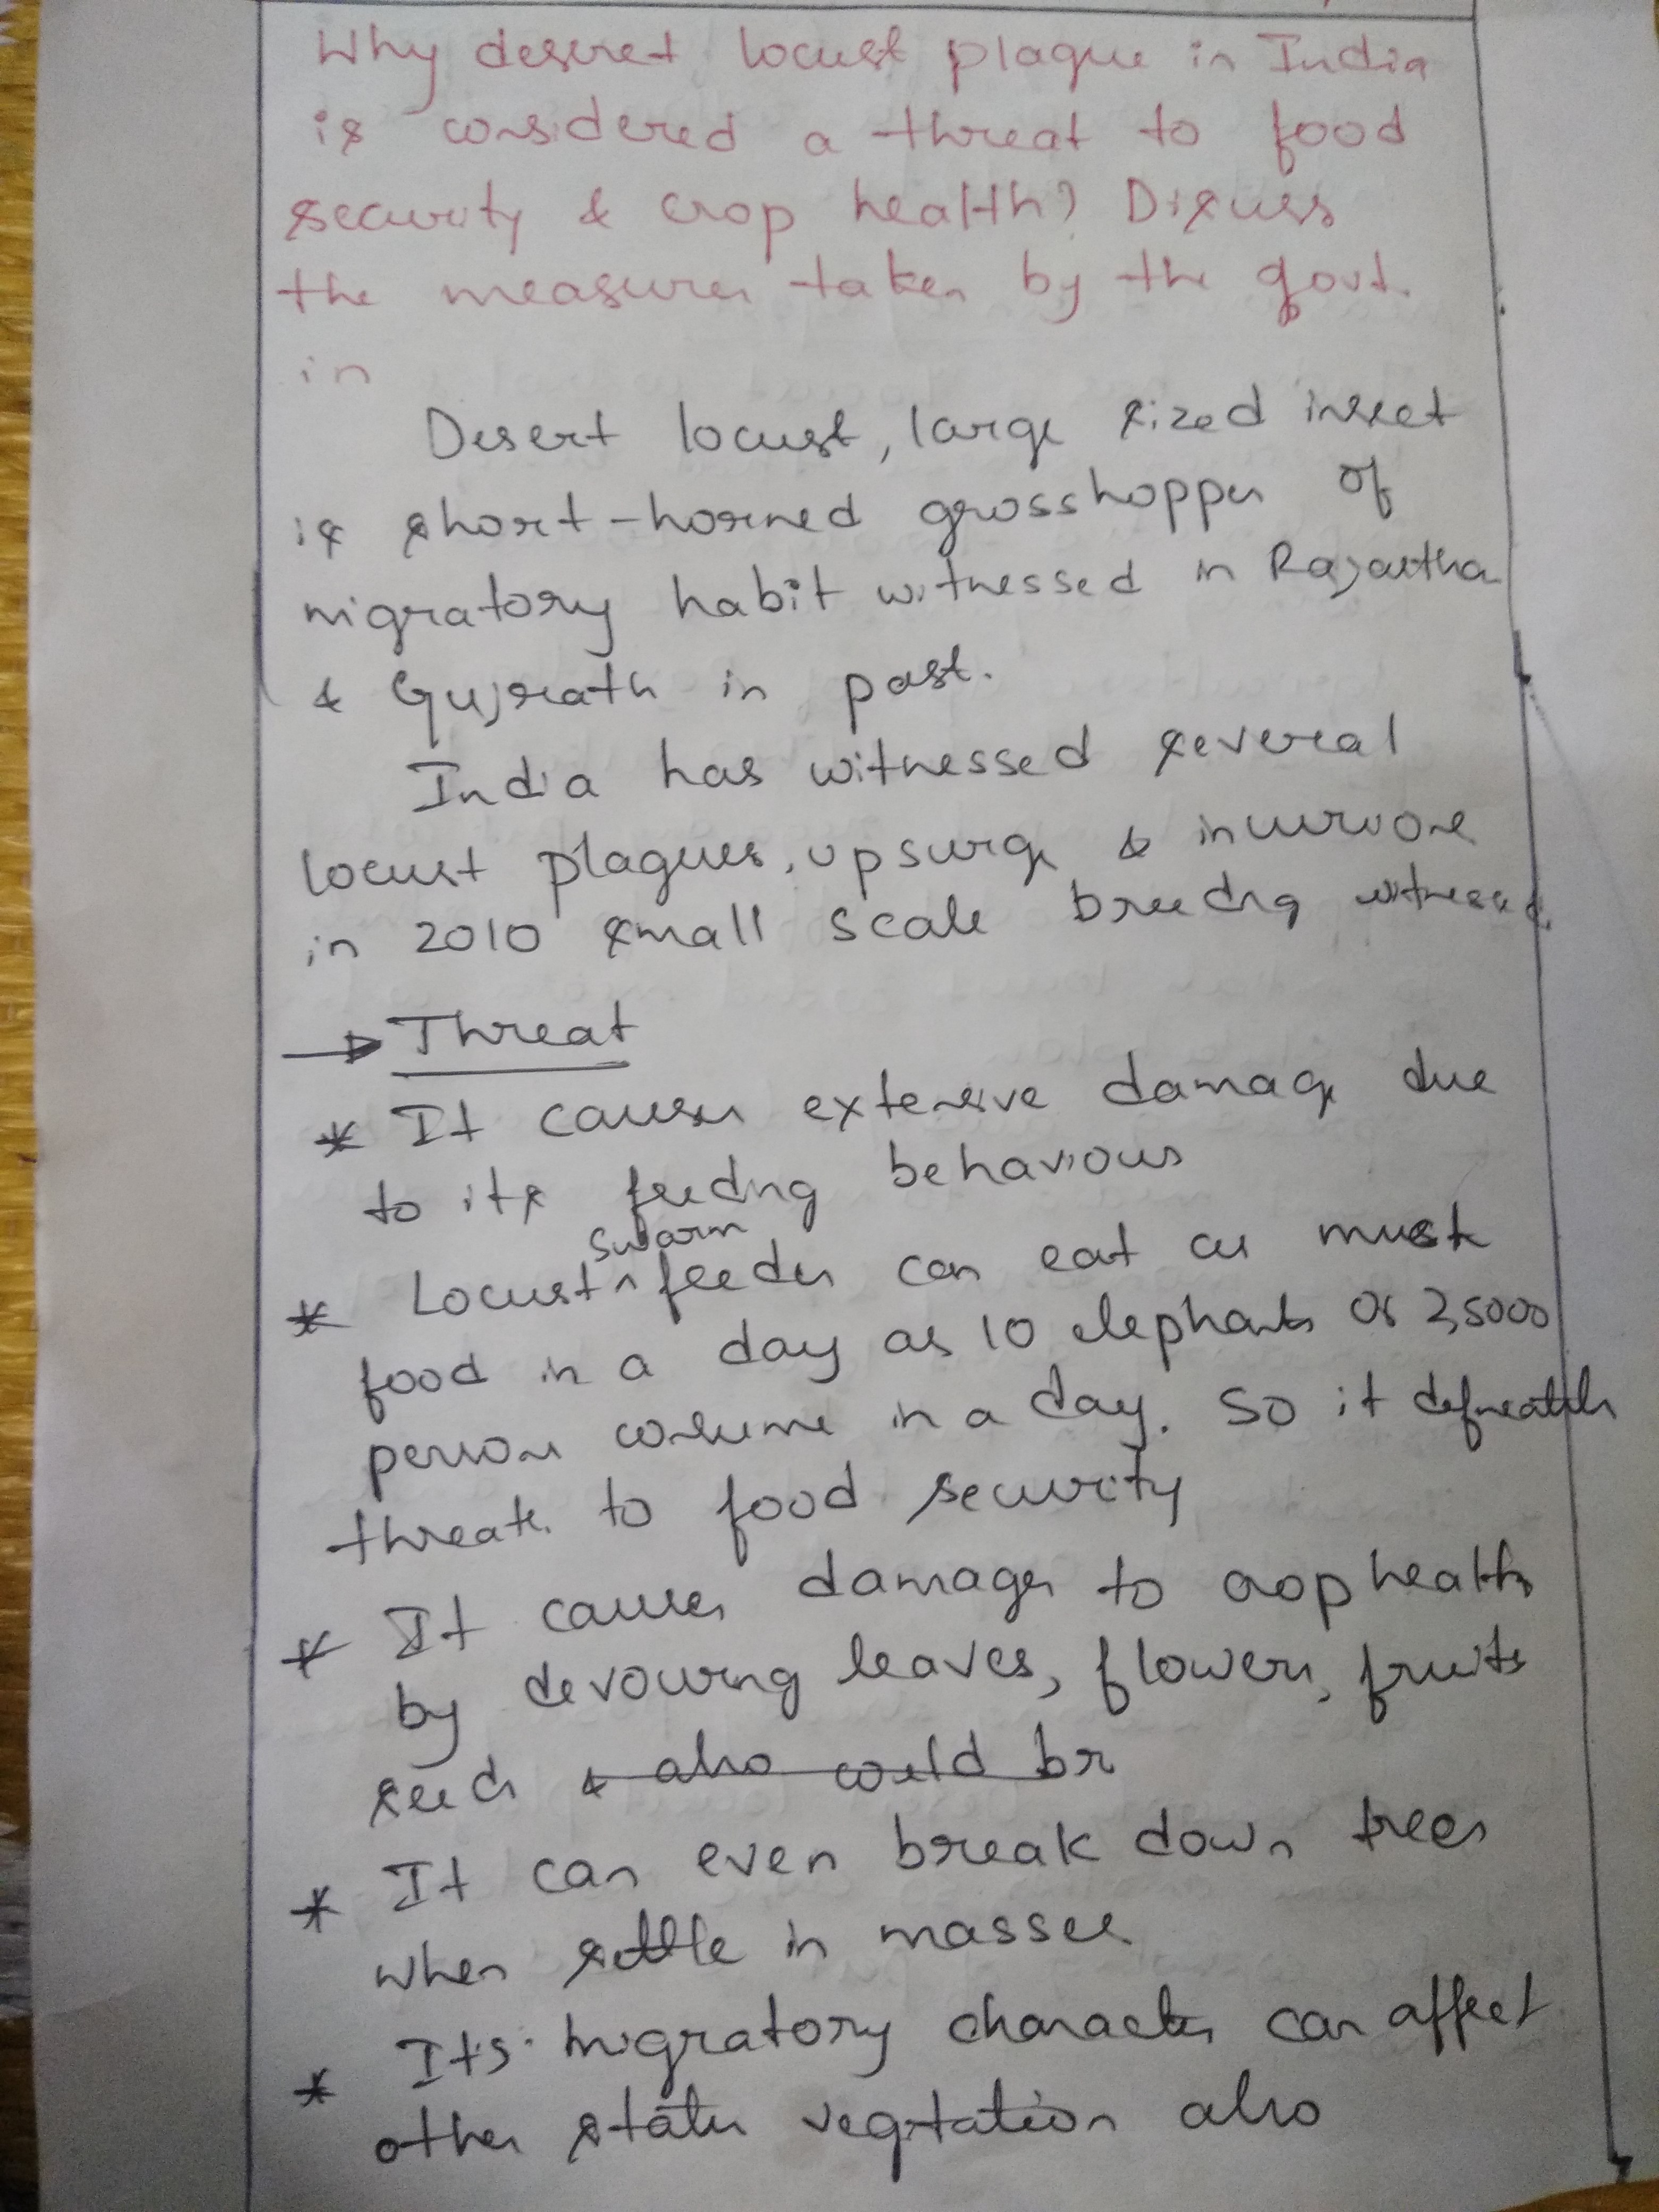 Why deseret locust plague in India
is considered a threat to food
security & crop health? Discuss
the measures taken by the govt.
in
Desert locust, large sized insect
is short-horned grosshopper of
migratory habit witnessed in Rajastha
& Gujrath in past.
India has witnessed several
locust plagues, upsurge & incursions
in 2010 small scale breeding witnessed.
→ Threat
* It causes extensive damage due
to its feeding behaviour
swarm
* Locust ^ feeder can eat as
food in a day as 10 elephants or 2,5000
persons consume in a day. So it
threat to food security
* It causes damages to crop health
by devouring leaves, flowers, fruits
seeds & also could br
* It can even break down trees
when settle in masses
* Its migratory character can affect
other states vegtation also